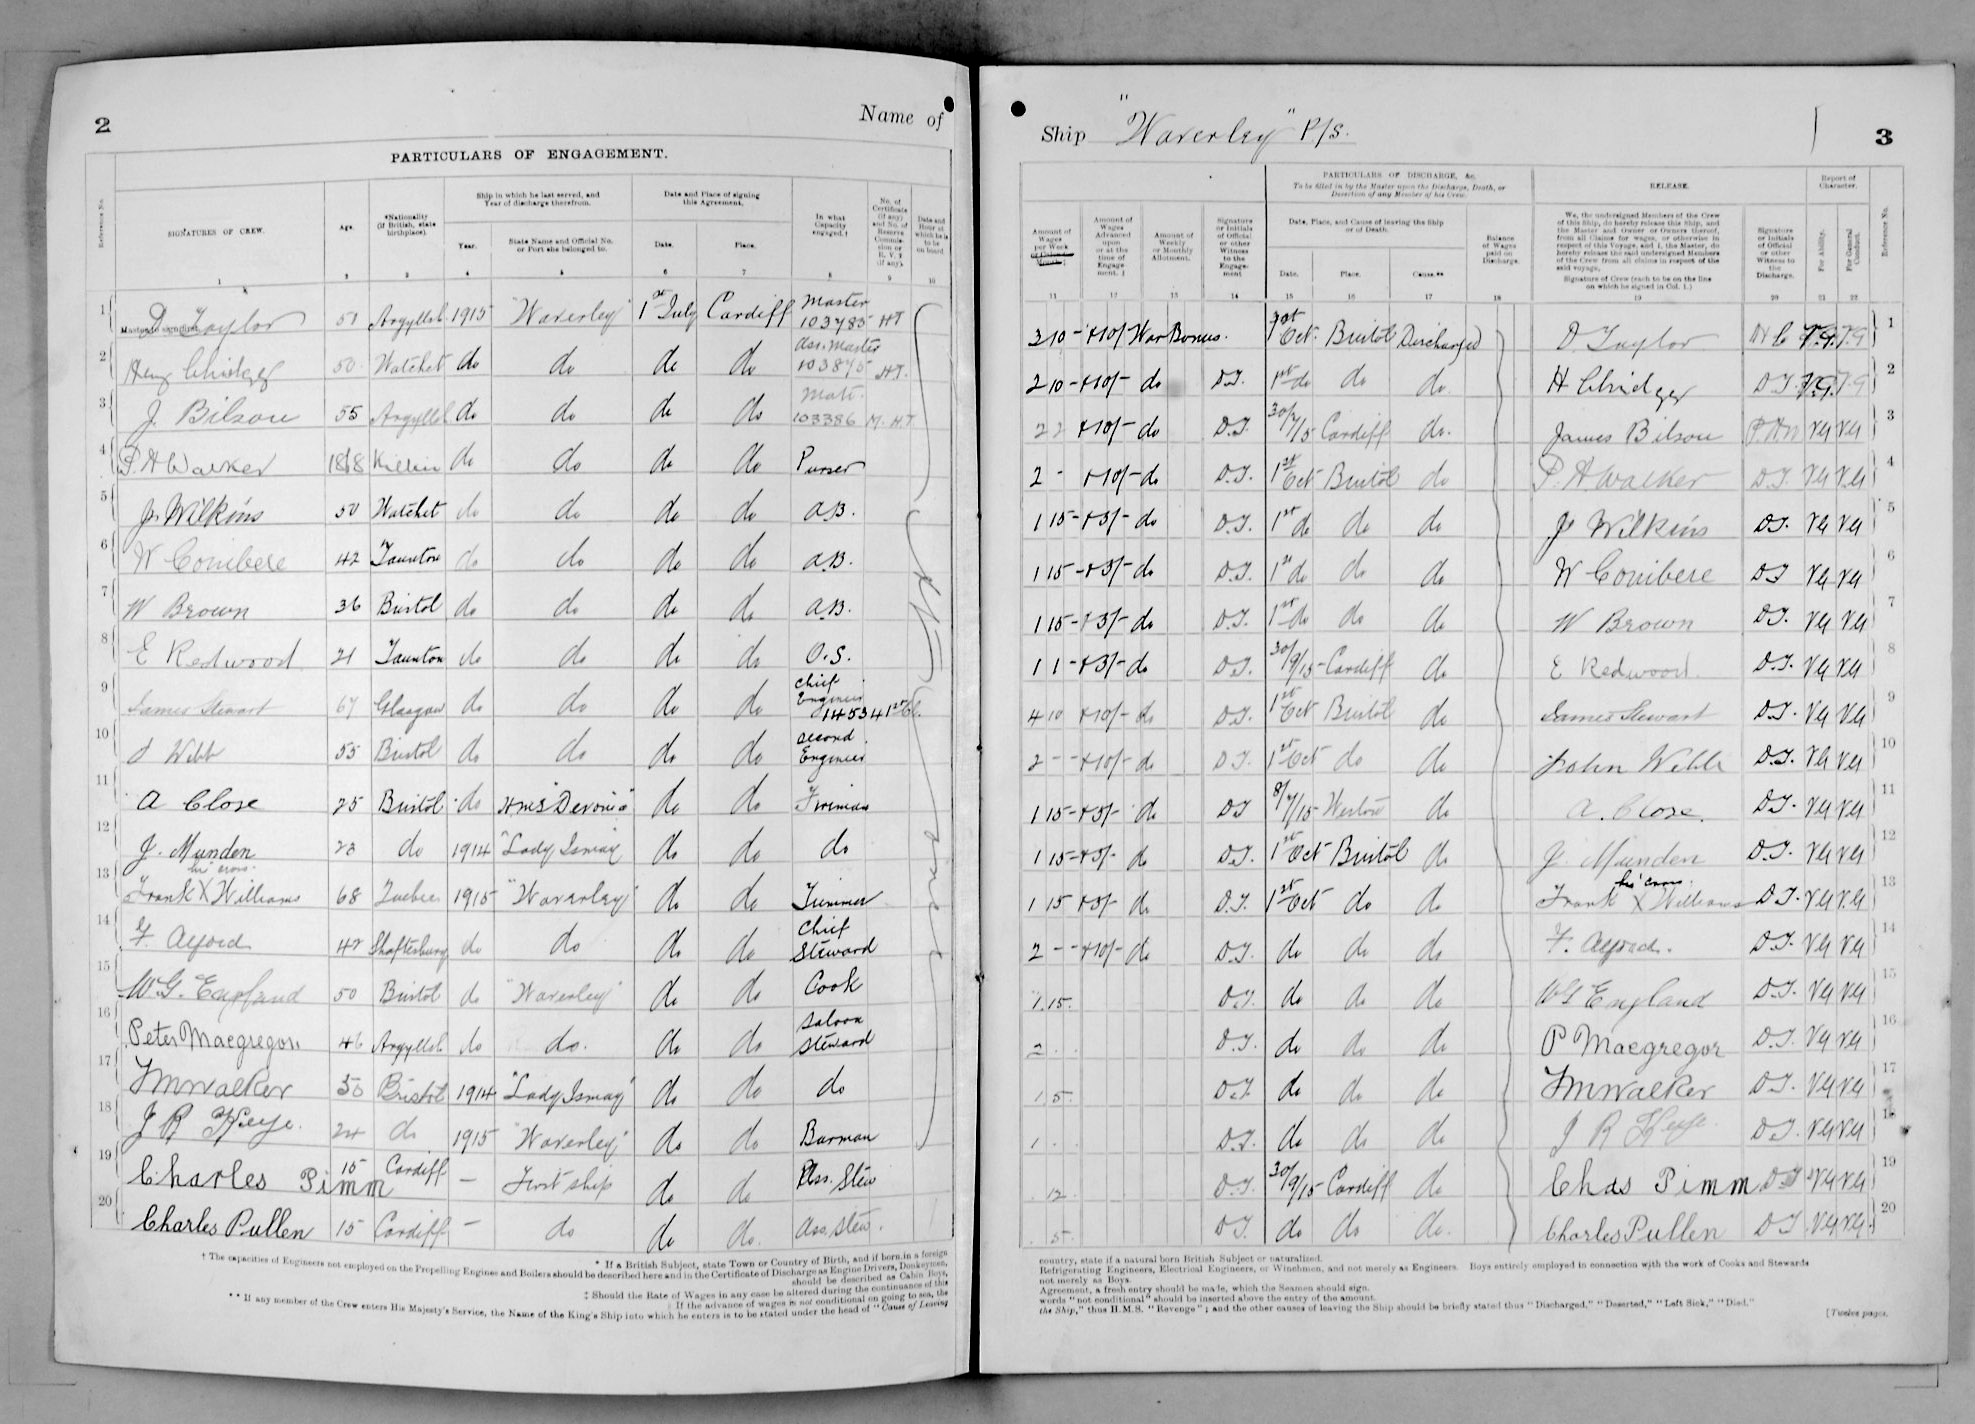 2
Name of
PARTICULARS OF ENGAGEMENT.
Reference No.
SIGNATURES OF CREW.
Age.
*Nationality (if British, state birthplace).
Ship in which he last served, and Year of discharge therefrom.
Year.
State Name and Official No. or Port she belonged to.
Date and Place of signing this Agreement.
Date.
Place.
In what Capacity engaged.†
No. of Certificate (if any) and No. of Reserve Commission or R.V.2 (if any).
Date and Hour at which he is to be on board
1 2 3 4 5 6 7 8 9 10
1 D. Taylor 51 Argyllsh 1915 "Waverley" 1st July Cardiff Master 103785 HT
Master to sign first
2 Heny Chidgey 50 Watchet do do do do Ass. Master 103875 HT.
3 J. Bilson 55 Argyllsh do do do do Mate. 103386 M. H.T.
4 P. H Walker 1868 Killin do do do do Purser
5 J. Wilkins 50 Watchet do do do do A.B.
6 W Conibere 42 Taunton do do do do A.B.
7 W Brown 36 Bristol do do do do A.B.
8 E Redwood 21 Taunton do do do do O.S.
9 James Stewart 67 Glasgow do do do do Chief Engineer 14534 1st Cl.
10 J Webb 55 Bristol do do do do Second Engineer
11 A Close 25 Bristol do HMS "Devonia" do do Fireman
12 J. Munden 23 do 1914 "Lady Ismay" do do do
his cross.
13 Frank X Williams 68 Quebec 1915 "Waverley" do do Trimmer
14 F. Alford 42 Shaftesbury do do do do Chief Steward
15 W. G. England 50 Bristol do "Waverley" do do Cook
16 Peter Macgregor 46 Argyllsh do do. do do Saloon Steward
17 F M Walker 50 Bristol 1914 "Lady Ismay" do do do
18 J R Keye. 24 do 1915 "Waverley" do do Barman
19 Charles Pimm 15 Cardiff — First ship do do Ass. Stew
20 Charles Pullen 15 Cardiff — do do do. Ass. Stew.
* If a British Subject, state Town or Country of Birth, and if born in a foreign
† The capacities of Engineers not employed on the Propelling Engines and Boilers should be described here and in the Certificate of Discharge as Engine Drivers, Donkeymen,
should be described as Cabin Boys,
‡ Should the Rate of Wages in any case be altered during the continuance of this
If the advance of wages is not conditional on going to sea, the
** If any member of the Crew enters His Majesty's Service, the Name of the King's Ship into which he enters is to be stated under the head of "Cause of Leaving
Ship "Waverley" P/S.
3
Amount of Wages per Week or Calendar Month.‡
Amount of Wages Advanced upon or at the time of Engagement.‡
Amount of Weekly or Monthly Allotment.
Signature or Initials of Official or other Witness to the Engagement
PARTICULARS OF DISCHARGE, &c.
To be filled in by the Master upon the Discharge, Death, or Desertion of any Member of his Crew.
Date, Place, and Cause of leaving the Ship or of Death.
Date.
Place.
Cause.**
Balance of Wages paid on Discharge.
RELEASE.
We, the undersigned Members of the Crew of this Ship, do hereby release this Ship, and the Master and Owner or Owners thereof, from all Claims for wages, or otherwise in respect of this Voyage, and I, the Master, do hereby release the said undersigned Members of the Crew from all claims in respect of the said voyage.
Signature of Crew (each to be on the line on which he signed in Col. 1.)
Signature or Initials of Official or other Witness to the Discharge.
Report of Character.
For Ability.
For General Conduct.
Reference No.
11 12 13 14 15 16 17 18 19 20 21 22
3 10 - + 10/- War Bonus. 1st Oct. Bristol Discharged D. Taylor H C V.G. V.G 1
2 10 - + 10/- do D.T. 1st do do do. H Chidgey D.T. V.G. V.G 2
2 2 + 10/- do D.T. 30/7/15 Cardiff do. James Bilson P.H.W VG VG 3
2 - + 10/- do D.T. 1st Oct Bristol do P. H. Walker D.T. VG VG 4
1 15 - + 3/- do D.T. 1st do do do J. Wilkins D.T. VG VG 5
1 15 - + 3/- do D.T. 1st do do do W Conibere D.T VG VG 6
1 15 - + 3/- do D.T. 1st do do do W Brown D.T. VG VG 7
1 1 - + 3/- do D.T. 30/9/15 - Cardiff do E Redwood. D.T. VG VG 8
4 10 + 10/- do D.T. 1st Oct Bristol do James Stewart D.T. VG VG 9
2 - - + 10/- do D.T. 1st Oct do do John Webb D.T. VG VG 10
1 15 - + 3/- do D.T 8/7/15 - Weston do A. Close. D.T. VG VG 11
1 15 - + 3/- do D.T. 1st Oct Bristol do J. Munden D.T. VG VG 12
his cross.
1 15 + 3/- do D.T. 1st Oct do do Frank X Williams D.T. VG VG 13
2 - - + 10/- do D.T. do do do F. Alford. D.T. VG VG 14
1. 15. D.T. do do do W G England D.T. VG VG 15
2 . . D.T. do do do P Macgregor D.T. VG VG 16
1 5. D.T. do do do F M Walker D.T. VG VG 17
1 . . D.T. do do do J R Keye. D.T. VG VG 18
. 12. D.T. 30/9/15 Cardiff do Chas Pimm D.T VG VG 19
. 5. D.T. do do do. Charles Pullen D.T VG VG. 20
country, state if a natural born British Subject or naturalized.
Refrigerating Engineers, Electrical Engineers, or Winchmen, and not merely as Engineers. Boys entirely employed in connection with the work of Cooks and Stewards
not merely as Boys.
Agreement, a fresh entry should be made, which the Seamen should sign.
words "not conditional" should be inserted above the entry of the amount.
the Ship," thus H.M.S. "Revenge"; and the other causes of leaving the Ship should be briefly stated thus "Discharged," "Deserted," "Left Sick," "Died."
[Twelve pages.